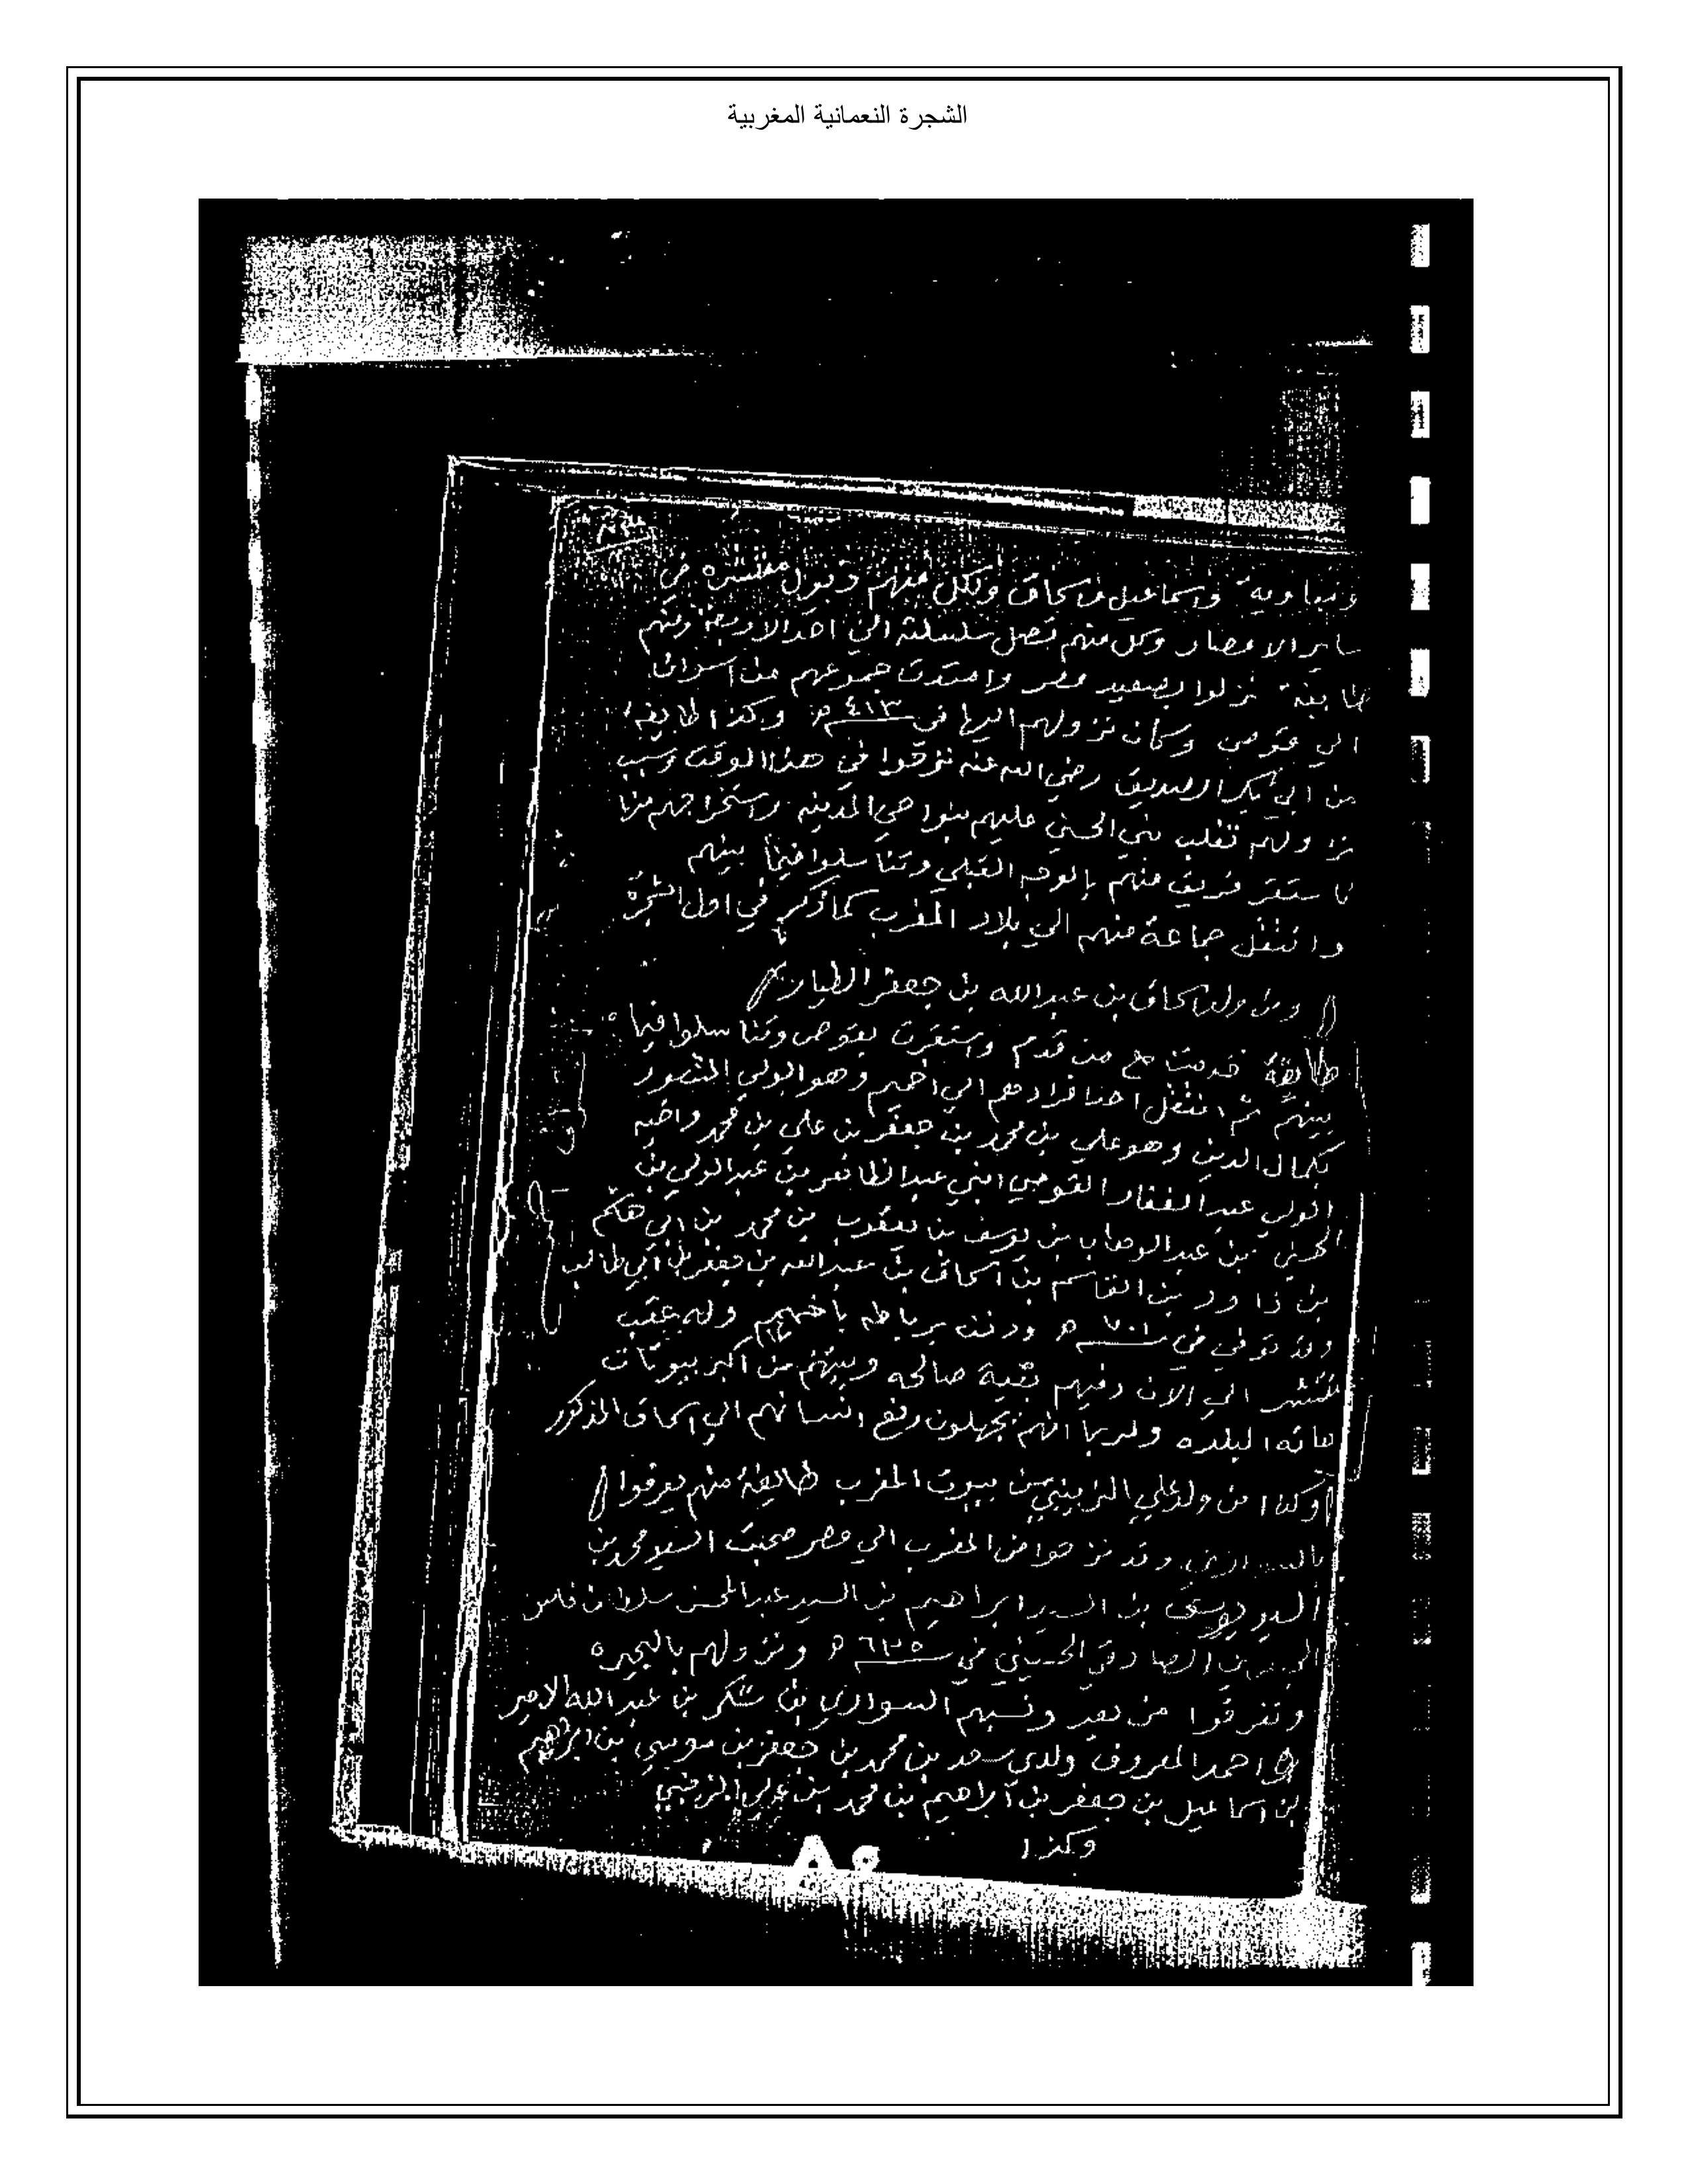 الشجرة النعمانية المغربية
ومعاوية واسماعيل واسحاق ولكل منهم ذيول منتشره في
ساير الامصار وكل منهم تصل سلسلته الي احد الاربعة ومنهم
طايفة نزلوا بصعيد مصر وامتدت جموعهم من اسوان
الي قوص وكان نزولهم اليها في ٤١٣ ه وكذا طايفه
من ابي بكر الصديق رضي الله عنه نزحوا في هذا الوقت وسبب
نزولهم تغلب بني الحسين عليهم بنواحي المدينه واستخراجهم منها
فاستقر فريق منهم بالوجه القبلي وتناسلوا فيما بينهم
وانتقل جماعة منهم الي بلاد المغرب كما ذكر في اول الشجرة
ومن ولد اسحاق بن عبد الله بن جعفر الطيار
طايفة قدمت مع من قدم واستقرت بقوص وتناسلوا فيما
بينهم ثم انتقل احد افرادهم الي اخميم وهو الولي
بكمال الدين وهو علي بن محمد بن جعفر بن علي بن محمد واخيه
الولي عبد الغفار القوصي ابني عبد الظاهر بن عبد الولي بن
بن عبد الوهاب بن يوسف بن يعقوب بن محمد بن ابي هاشم
بن داود بن القاسم بن اسحاق بن عبد الله بن جعفر بن ابي طالب
وقد توفي في ٧٠١ ه ودفن برباطه باخميم وله عقب
منتشر الي الان وفيهم بقية صالحه وبيتهم من اكبر بيوتات
هاته البلده ولربما انهم يجهلون رفع انسابهم الي اسحاق المذكور
وكذا من ولد علي الزينبي من بيوت المغرب طايفة منهم يعرفوا
وقد نزحوا من المغرب الي مصر صحبت السيد محمد بن
السيد يوسف بن السيد ابراهيم بن السيد عبد المحسن سلطان فاس
بن الصادق الحسيني في ٦٣٥ ه ونزولهم بالبحيره
وتفرقوا من بعد ونسبهم السواري بن شكر بن عبد الله الامير
احمد المعروف ولدي سعد بن محمد بن جعفر بن موسي بن ابراهيم
بن اسماعيل بن جعفر بن ابراهيم بن محمد بن علي الزينبي
وكذا